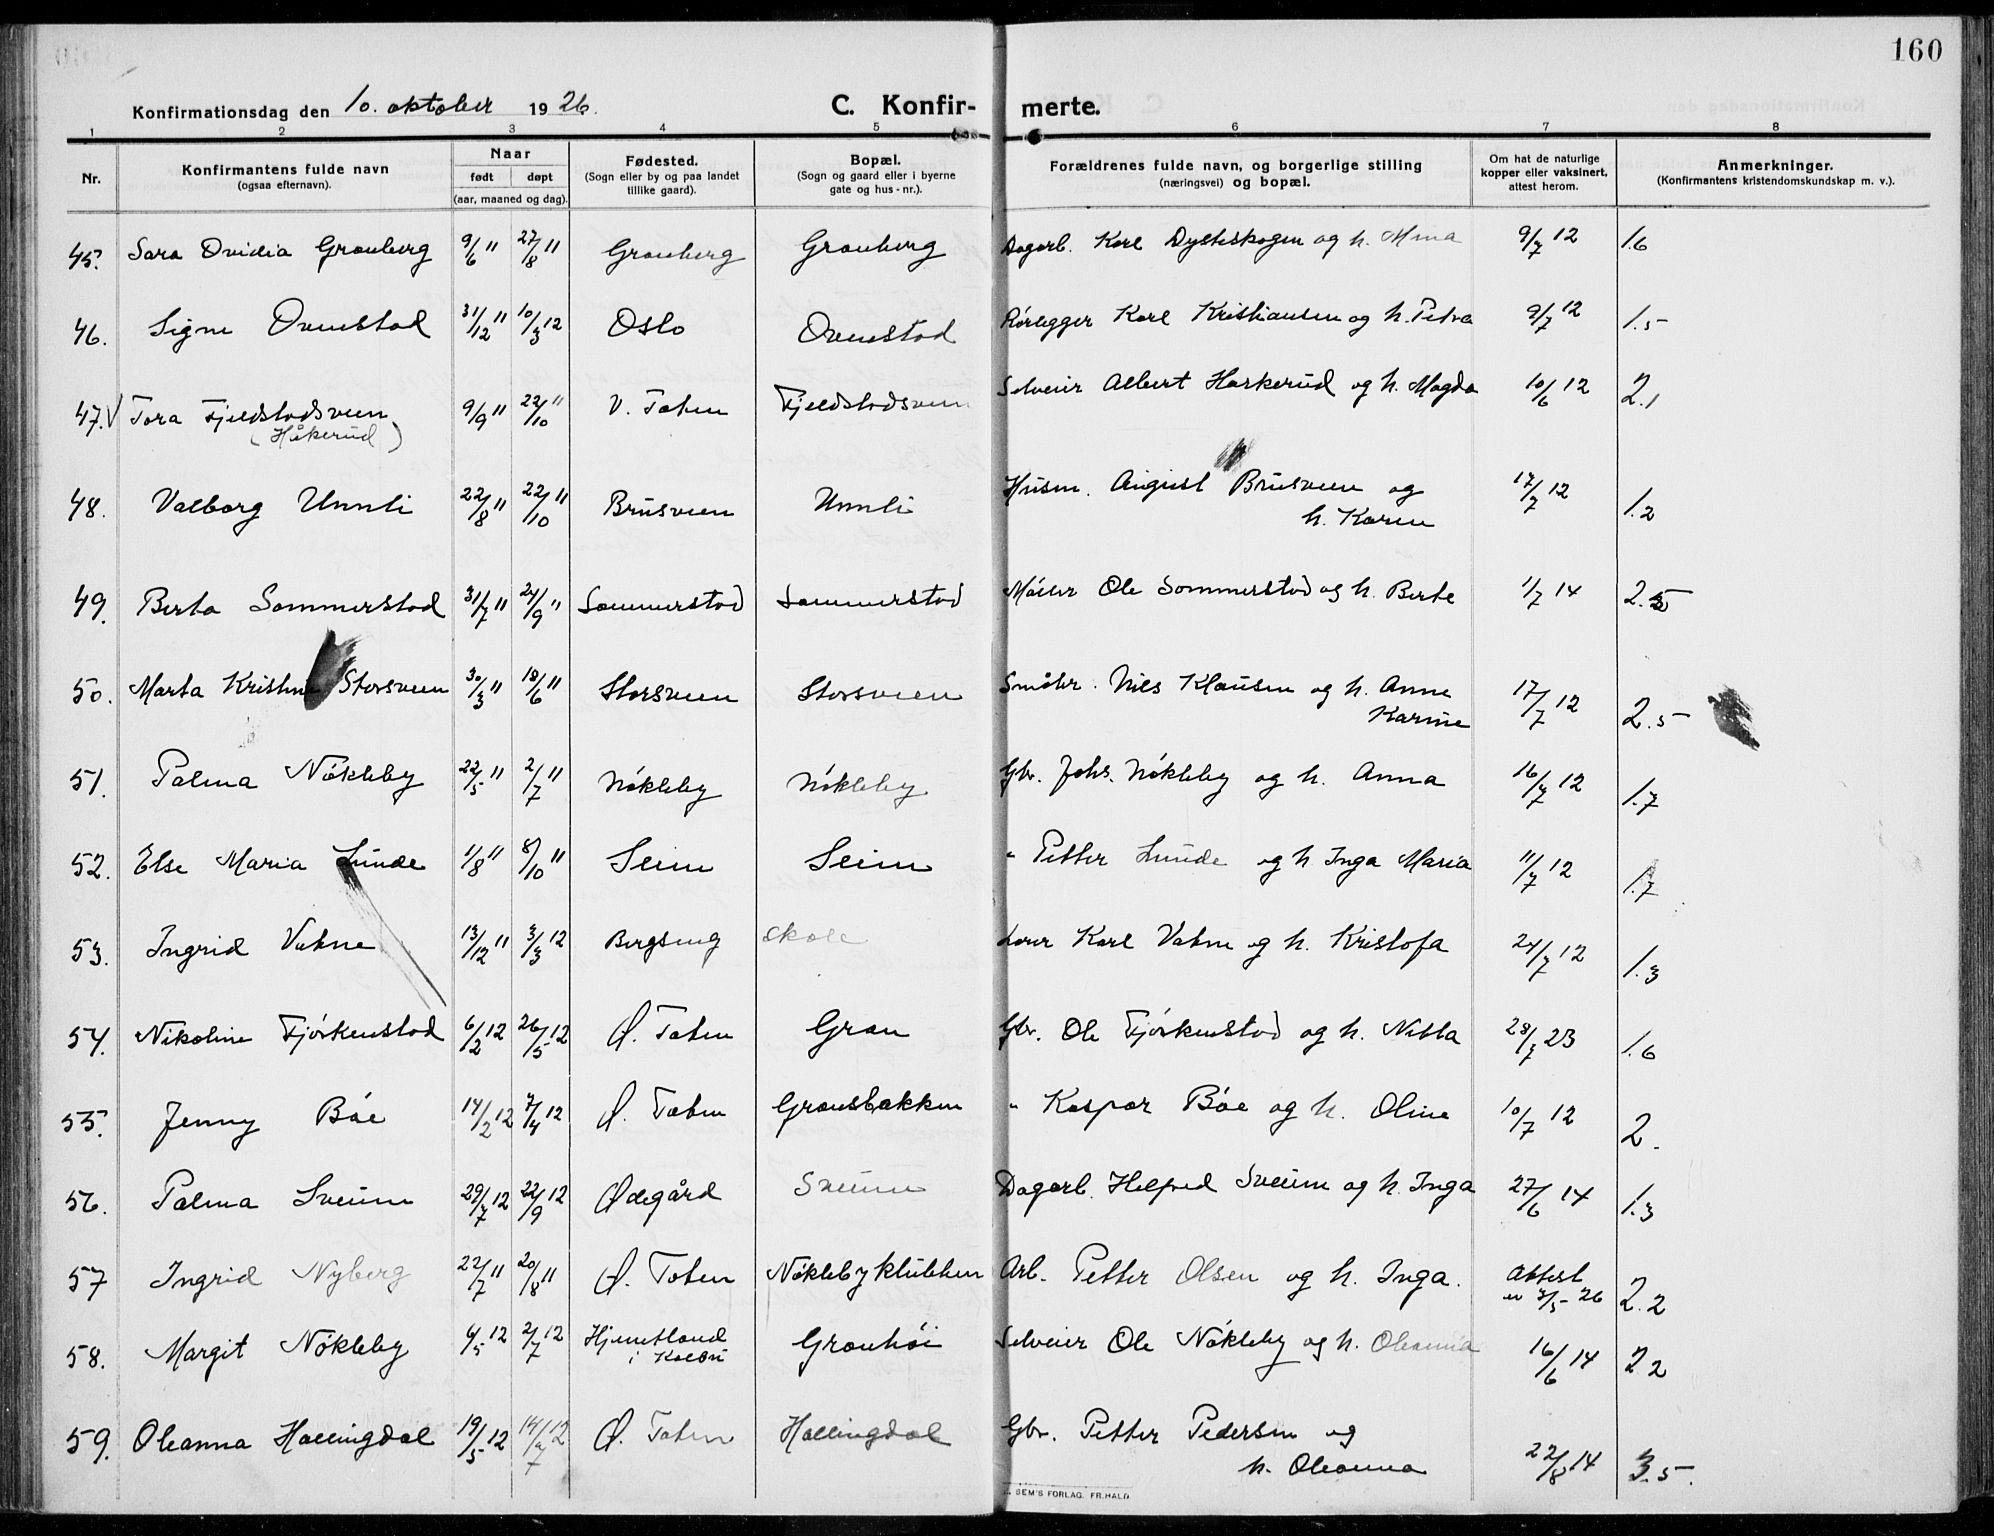 160
Konfirmationsdag den 10. oktober 1926.
C. Konfir- merte.
1 2 3 4 5 6 7 8
Nr.
Konfirmantens fulde navn
(ogsaa efternavn).
Naar
født døpt
(aar, maaned og dag).
Fødested.
(Sogn eller by og paa landet
tillike gaard).
Bopæl.
(Sogn og gaard eller i byerne
gate og hus-nr.).
Forældrenes fulde navn, og borgerlige stilling
(næringsvei) og bopæl.
Om hat de naturlige
kopper eller vaksinert,
attest herom.
Anmerkninger.
(Konfirmantens kristendomskundskap m. v.).
45. Sara Ovidia Granberg 9/6 11 27/8 11 Granberg Granberg Dagarb. Karl Dysteskogen og h. Mina 9/7 12 1.6
46. Signe Ovenstad 31/12 11 10/3 12 Oslo Ovenstad Rørlegger Karl Kristiansen og h. Petra 9/7 12 1.5
47. V Tora Fjeldstadsveen 9/9 11 22/10 11 V. Toten Fjeldstadsveen Selveier Albert Haakerud og h. Magda 10/6 12 2.1
(Håkerud)
48. Valborg Unnli 22/8 11 22/10 11 Brusveen Unnli Husm. August Brusveen og
h. Karen 17/7 12 1.2
49. Berta Sommerstad 31/7 11 24/9 11 Sommerstad Sommerstad Møller Ole Sommerstad og h. Berte 1/7 14 2.5
50. Marta Kristine Storsveen 30/3 11 18/6 11 Storsveen Storsveen Småbr. Nils Klausen og h. Anne
Karine 17/7 12 2.5
51. Palma Nøkleby 22/5 11 2/7 11 Nøkleby Nøkleby Gbr. Johs. Nøkleby og h. Anna 16/7 12 1.7
52. Else Maria Lunde 1/8 11 8/10 11 Seim Seim " Petter Lunde og h Inga Maria 11/7 12 1.7
53. Ingrid Vatne 13/12 11 3/3 12 Bergseng skole Lærer Karl Vatne og h. Kristofa 24/7 12 1.3
54. Nikoline Fjørkenstad 6/2 12 26/5 12 Ø. Toten Gran Gbr. Ole Fjørkenstad og h. Netta 28/7 23 1.6
55. Jenny Bøe 14/2 12 7/4 12 Ø. Toten Gransbakken " Kaspar Bøe og h. Oline 10/7 12 2.
56. Palma Sveum 29/7 12 22/9 12 Ødegård Sveum Dagarb. Helfred Sveum og h. Inga 27/6 14 1.3
57 Ingrid Nyberg 22/7 11 20/8 11 Ø. Toten Nøklebyklubben Arb. Petter Olsen og h. Inga. Attest
av 7/5 - 26 2.2
58. Margit Nøkleby 4/5 12 2/7 12 Hjemstand
i Kolbu Granhøi Selveier Ole Nøkleby og h. Oleanna 16/6 14 2 2
59. Oleanna Hallingdal 19/5 12 14/7 12 Ø. Toten Hallingdal Gbr. Petter Pedersen og
h. Oleanna 22/8 14 3.5.
SEM'S FORLAG. FR.HALD